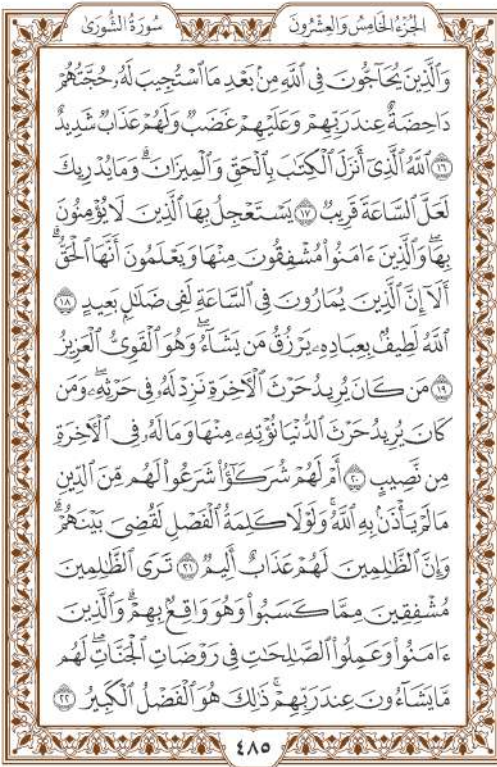 الجزء الخامس والعشرون سورة الشورى
وَٱلَّذِينَ يُحَآجُّونَ فِى ٱللَّهِ مِنۢ بَعْدِ مَا ٱسْتُجِيبَ لَهُۥ حُجَّتُهُمْ
دَاحِضَةٌ عِندَ رَبِّهِمْ وَعَلَيْهِمْ غَضَبٌ وَلَهُمْ عَذَابٌ شَدِيدٌ
١٦ ٱللَّهُ ٱلَّذِىٓ أَنزَلَ ٱلْكِتَٰبَ بِٱلْحَقِّ وَٱلْمِيزَانَ ۗ وَمَا يُدْرِيكَ
لَعَلَّ ٱلسَّاعَةَ قَرِيبٌ ١٧ يَسْتَعْجِلُ بِهَا ٱلَّذِينَ لَا يُؤْمِنُونَ
بِهَا ۖ وَٱلَّذِينَ ءَامَنُوا۟ مُشْفِقُونَ مِنْهَا وَيَعْلَمُونَ أَنَّهَا ٱلْحَقُّ ۗ
أَلَآ إِنَّ ٱلَّذِينَ يُمَارُونَ فِى ٱلسَّاعَةِ لَفِى ضَلَٰلٍۭ بَعِيدٍ ١٨
ٱللَّهُ لَطِيفٌۢ بِعِبَادِهِۦ يَرْزُقُ مَن يَشَآءُ ۖ وَهُوَ ٱلْقَوِىُّ ٱلْعَزِيزُ
١٩ مَن كَانَ يُرِيدُ حَرْثَ ٱلْءَاخِرَةِ نَزِدْ لَهُۥ فِى حَرْثِهِۦ ۖ وَمَن
كَانَ يُرِيدُ حَرْثَ ٱلدُّنْيَا نُؤْتِهِۦ مِنْهَا وَمَا لَهُۥ فِى ٱلْءَاخِرَةِ
مِن نَّصِيبٍ ٢٠ أَمْ لَهُمْ شُرَكَٰٓؤُا۟ شَرَعُوا۟ لَهُم مِّنَ ٱلدِّينِ
مَا لَمْ يَأْذَنۢ بِهِ ٱللَّهُ ۚ وَلَوْلَا كَلِمَةُ ٱلْفَصْلِ لَقُضِىَ بَيْنَهُمْ ۗ
وَإِنَّ ٱلظَّٰلِمِينَ لَهُمْ عَذَابٌ أَلِيمٌ ٢١ تَرَى ٱلظَّٰلِمِينَ
مُشْفِقِينَ مِمَّا كَسَبُوا۟ وَهُوَ وَاقِعٌۢ بِهِمْ ۗ وَٱلَّذِينَ
ءَامَنُوا۟ وَعَمِلُوا۟ ٱلصَّٰلِحَٰتِ فِى رَوْضَاتِ ٱلْجَنَّاتِ ۖ لَهُم
مَّا يَشَآءُونَ عِندَ رَبِّهِمْ ۚ ذَٰلِكَ هُوَ ٱلْفَضْلُ ٱلْكَبِيرُ ٢٢
٤٨٥